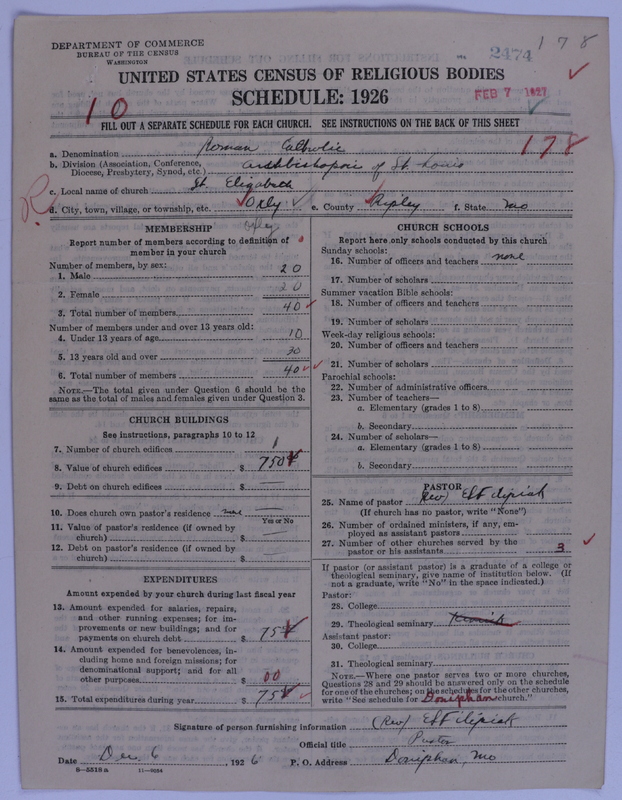 DEPARTMENT OF COMMERCE
BUREAU OF THE CENSUS
WASHINGTON
2474
178
UNITED STATES CENSUS OF RELIGIOUS BODIES
SCHEDULE: 1926
FEB 7 1927
10
FILL OUT A SEPARATE SCHEDULE FOR EACH CHURCH. SEE INSTRUCTIONS ON THE BACK OF THIS SHEET
a. Denomination Roman Catholic 178
b. Division (Association, Conference, Diocese, Presbytery, Synod, etc.) of St. Louis
c. Local name of church St. Elizabeth
R
d. City, town, village, or township, etc. Oxly e. County Ripley f. State Mo
MEMBERSHIP
Report number of members according to definition of member in your church
Number of members, by sex:
1. Male 20
2. Female 20
3. Total number of members 40
Number of members under and over 13 years old:
4. Under 13 years of age 10
5. 13 years old and over 30
6. Total number of members 40
NOTE.—The total given under Question 6 should be the same as the total of males and females given under Question 3.
CHURCH BUILDINGS
See instructions, paragraphs 10 to 12
7. Number of church edifices 1
8. Value of church edifices $ 750
9. Debt on church edifices $ —
10. Does church own pastor's residence none
Yes or No
11. Value of pastor's residence (if owned by church) $ —
12. Debt on pastor's residence (if owned by church) $ —
EXPENDITURES
Amount expended by your church during last fiscal year
13. Amount expended for salaries, repairs, and other running expenses; for improvements or new buildings; and for payments on church debt $ 75
14. Amount expended for benevolences, including home and foreign missions; for denominational support; and for all other purposes $ 00
15. Total expenditures during year $ 75
CHURCH SCHOOLS
Report here only schools conducted by this church
Sunday schools:
16. Number of officers and teachers none
17. Number of scholars
Summer vacation Bible schools:
18. Number of officers and teachers
19. Number of scholars
Week-day religious schools:
20. Number of officers and teachers
21. Number of scholars
Parochial schools:
22. Number of administrative officers
23. Number of teachers—
a. Elementary (grades 1 to 8)
b. Secondary
24. Number of scholars—
a. Elementary (grades 1 to 8)
b. Secondary
PASTOR
25. Name of pastor (Rev)
(If church has no pastor, write "None")
26. Number of ordained ministers, if any, employed as assistant pastors
27. Number of other churches served by the pastor or his assistants 3
If pastor (or assistant pastor) is a graduate of a college or theological seminary, give name of institution below. (If not a graduate, write "No" in the space indicated.)
Pastor:
28. College
29. Theological seminary
Assistant pastor:
30. College
31. Theological seminary
NOTE.—Where one pastor serves two or more churches, Questions 28 and 29 should be answered only on the schedule for one of the churches; on the schedules for the other churches, write "See schedule for Doniphan church."
Signature of person furnishing information (Rev)
Official title Pastor
Date Dec. 6 1926 P. O. Address Doniphan, Mo
8—5518a 11—9034